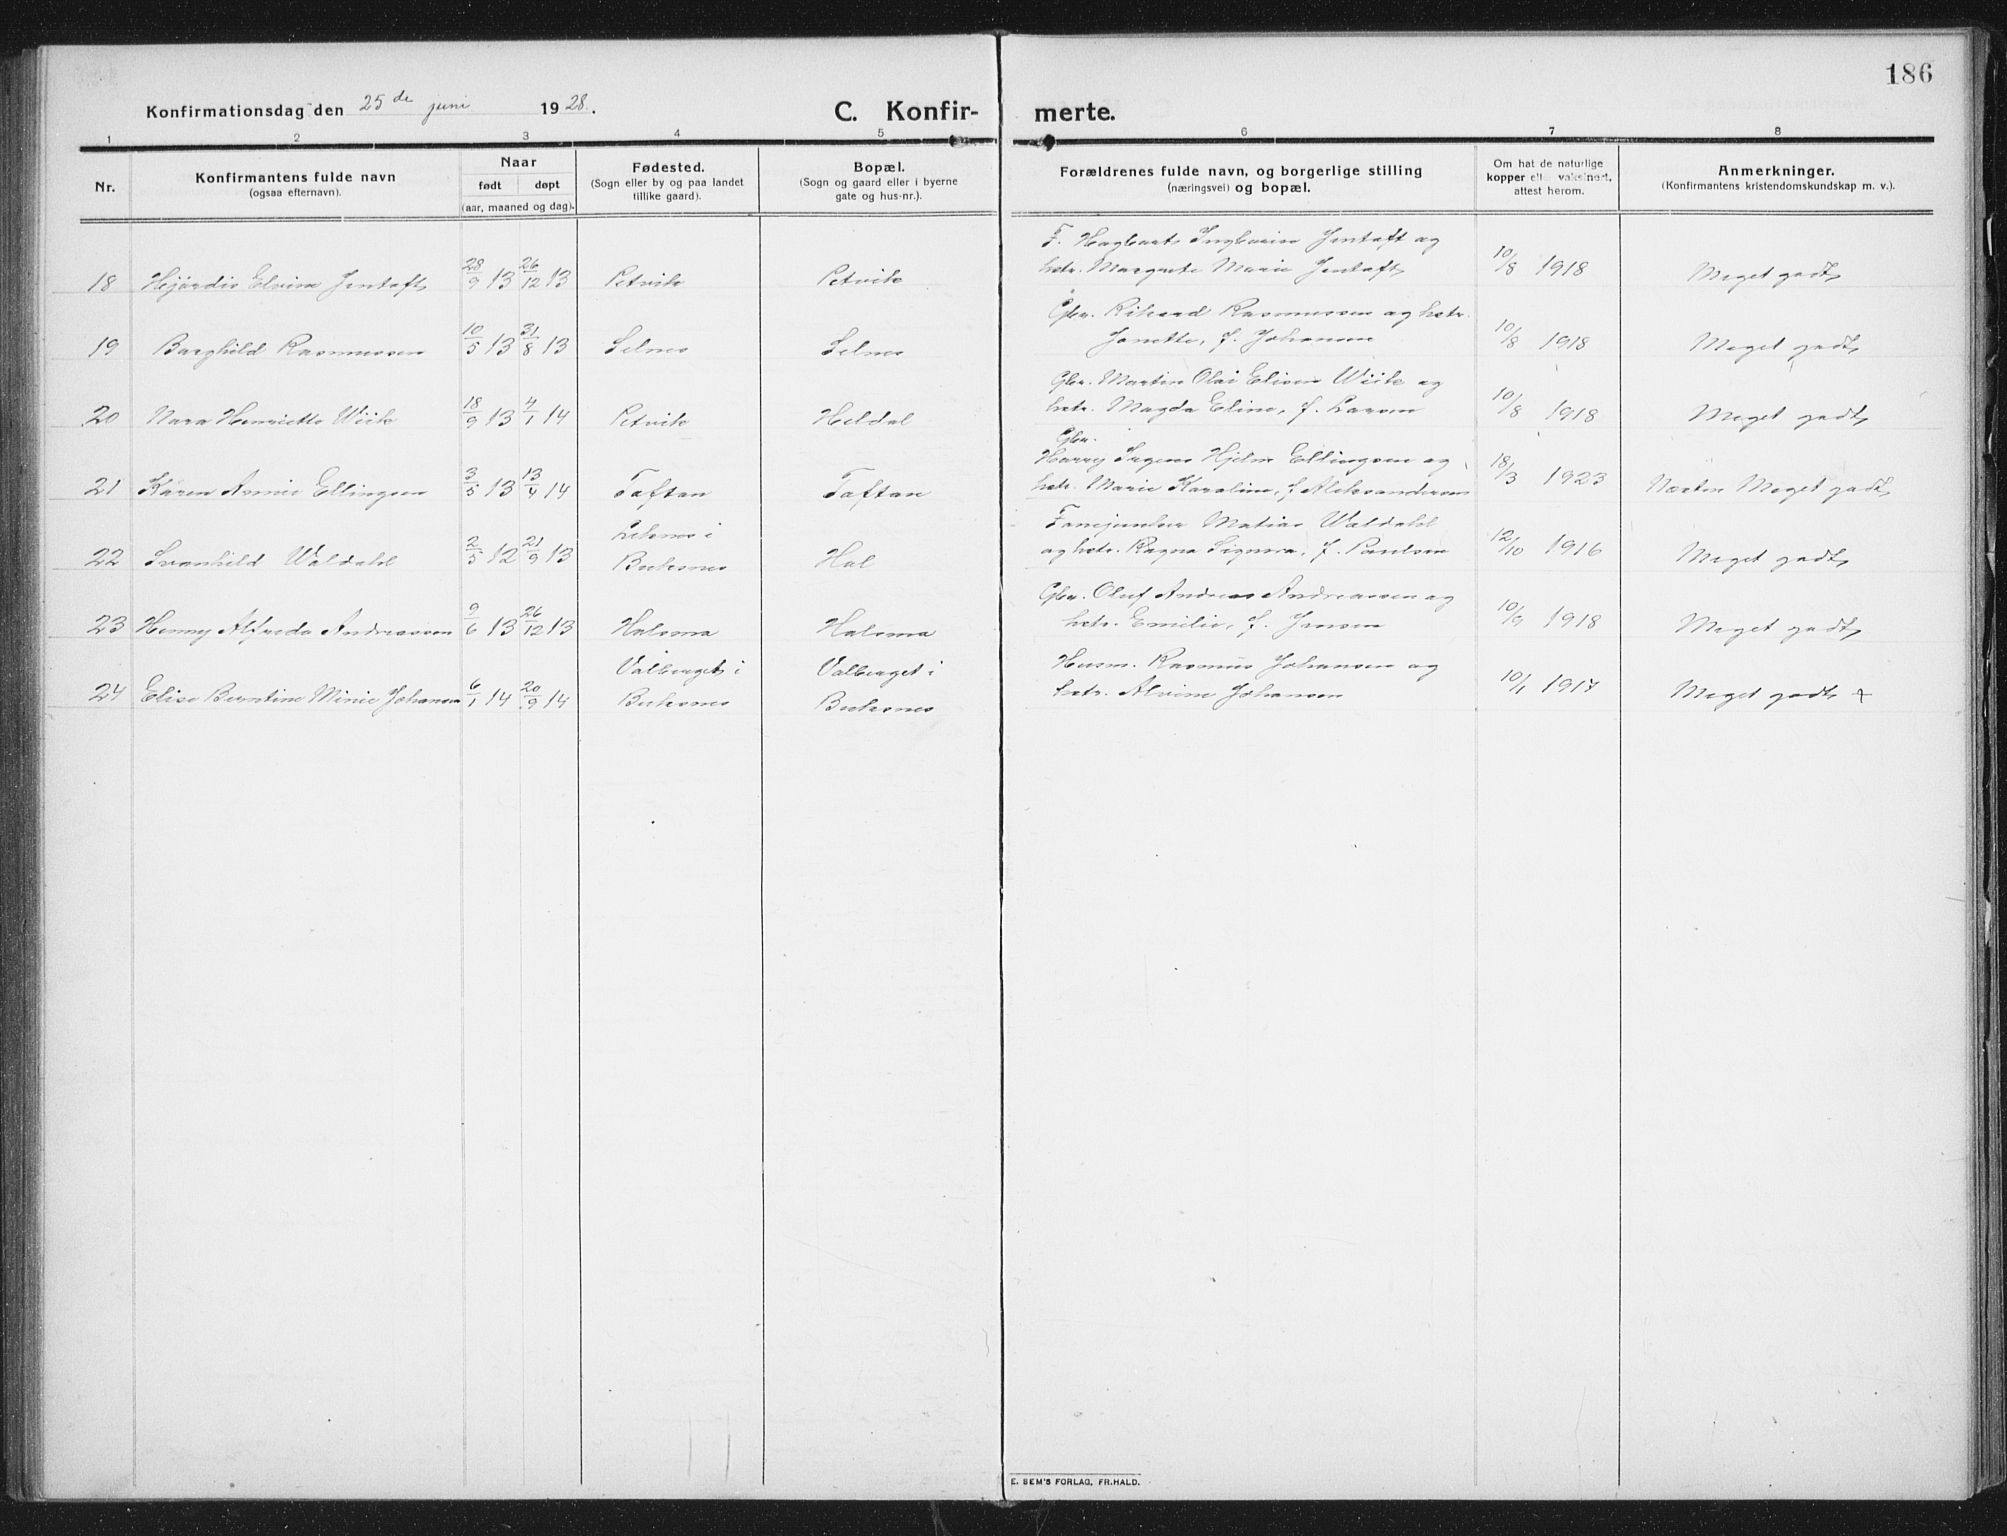 186
Konfirmationsdag den 25 de juni 1928.
C. Konfir- merte.
1 2 3 4 5 6 7 8
Nr.
Konfirmantens fulde navn
(ogsaa efternavn).
Naar
født døpt
(aar, maaned og dag).
Fødested.
(Sogn eller by og paa landet
tillike gaard).
Bopæl.
(Sogn og gaard eller i byerne
gate og hus-nr.).
Forældrenes fulde navn, og borgerlige stilling
(næringsvei) og bopæl.
Om hat de naturlige
kopper eller vaksinert,
attest herom.
Anmerkninger.
(Konfirmantens kristendomskundskap m. v.).
F. Hagbart Ingbarius Jentoft og
18 Hjørdis Elvine Jentoft 28/9 13 26/12 13 Petvik Petvik hstr. Margrete Marie Jentoft 10/8 1918 Meget godt
Gbr. Rikard Rasmussen og hstr.
19 Borghild Rasmussen 10/5 13 31/8 13 Selnes Selnes Janette, f. Johansen 10/8 1918 Meget godt
Gbr. Martin Olai Elisen Wiik og
20 Nora Henriette Wiik 18/9 13 4/1 14 Petvik Heldal hstr. Magda Eline, f. Larsen 10/8 1918 Meget godt
Gbr.
Harry Hjelm Ellingsen og
21 Karen Annie Ellingsen 3/5 13 13/4 14 Toftan Toftan hstr. Marie Karoline, f. Aleksandersen 18/3 1923 Næsten Meget godt
i
Matias Waldahl
22 Svanhild Waldahl 2/5 12 21/9 13 Buksnes Hol og hstr. Ragna Signora, f. Paulsen 12/10 1916 Meget godt
Gbr. Oluf Andreas Andreassen og
23 Henny Alfreda Andreassen 9/6 13 26/12 13 Halsma Halsma hstr. Emilie, f. Jensen 10/9 1918 Meget godt
Valberget i Valberget i Husm. Rasmus Johansen og
24 Elise Berntine Minie Johansen 6/1 14 20/9 14 Buksnes Buksnes hstr. Alvine Johansen 10/1 1917 Meget godt +
E. SEM'S FORLAG, FR.HALD.